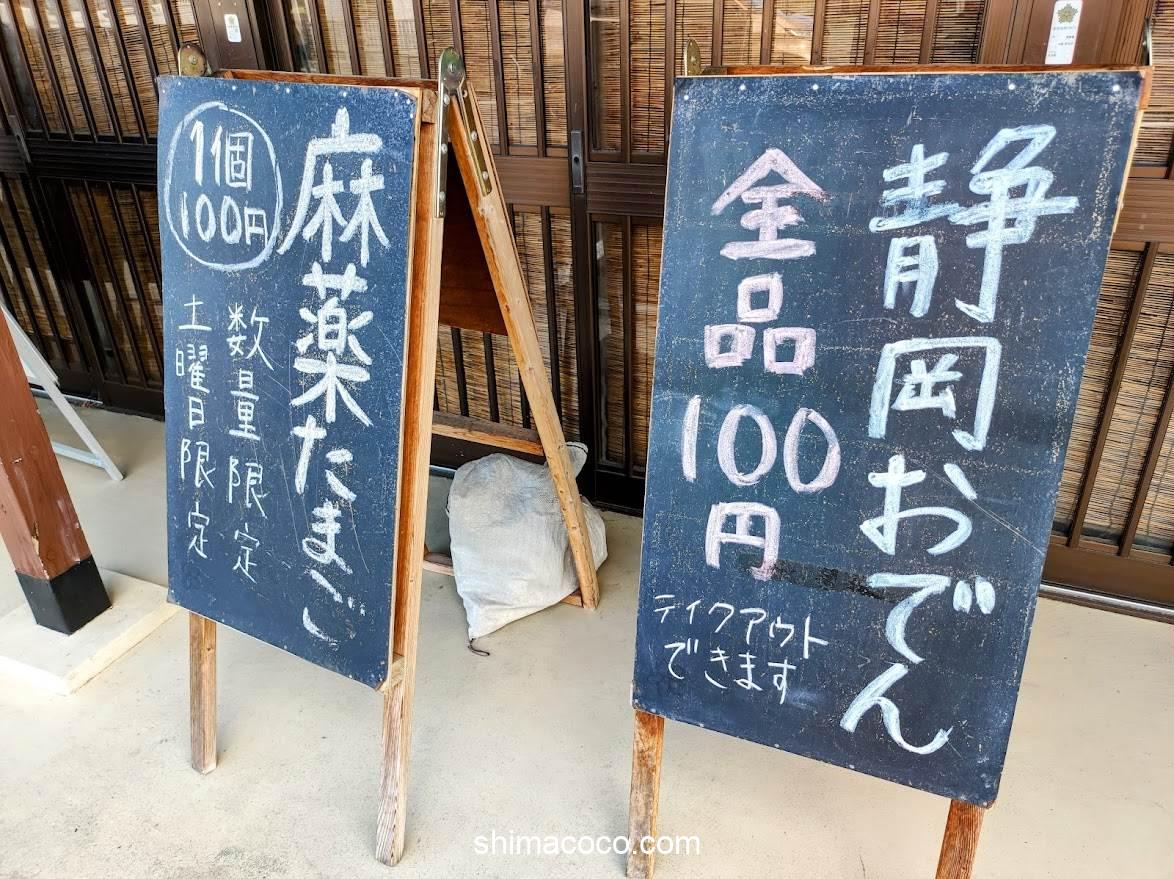 麻薬たまご
1個
100円
数量限定
土曜日限定
静岡おでん
全品100円
テイクアウト
できます
shimacoco.com